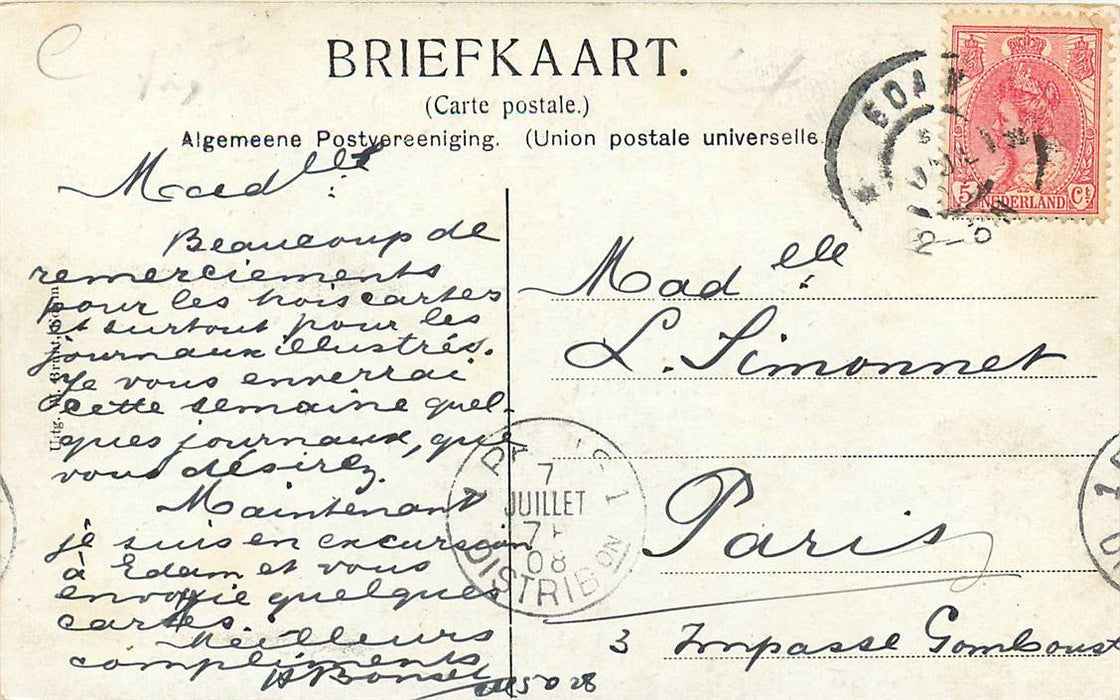 BRIEFKAART.
(Carte postale.)
Algemeene Postvereeniging. (Union postale universelle
EDAM
5 Ct
NEDERLAND
Madlle
Beaucoup de
remerciements
pour les trois cartes
et surtout pour les
journaux illustrés.
Je vous enverrai
cette semaine quel-
ques journaux, que
vous désirez.
Maintenant
je suis en excursion
à Edam et vous
envoie quelques
cartes.
Meilleurs
compliments
Uitg. W.
Madelle
L. Simonnet
Paris
3 Impasse Gomboust
7
JUILLET
08
DISTRIBON